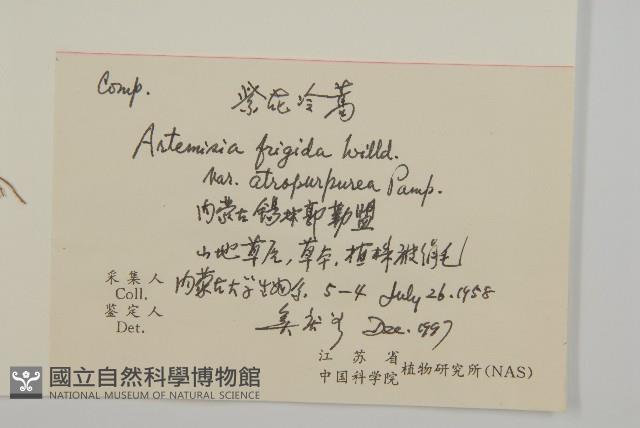 Comp.
紫花冷蒿
Artemisia frigida Willd.
var. atropurpurea Pamp.
内蒙古锡林郭勒盟
山地草原，草本，植株被绢毛
采集人 内蒙古大学生物系 5-4 July 26. 1958
Coll.
鉴定人 Dec. 1997
Det.
江苏省
中国科学院 植物研究所(NAS)
國立自然科學博物館
NATIONAL MUSEUM OF NATURAL SCIENCE